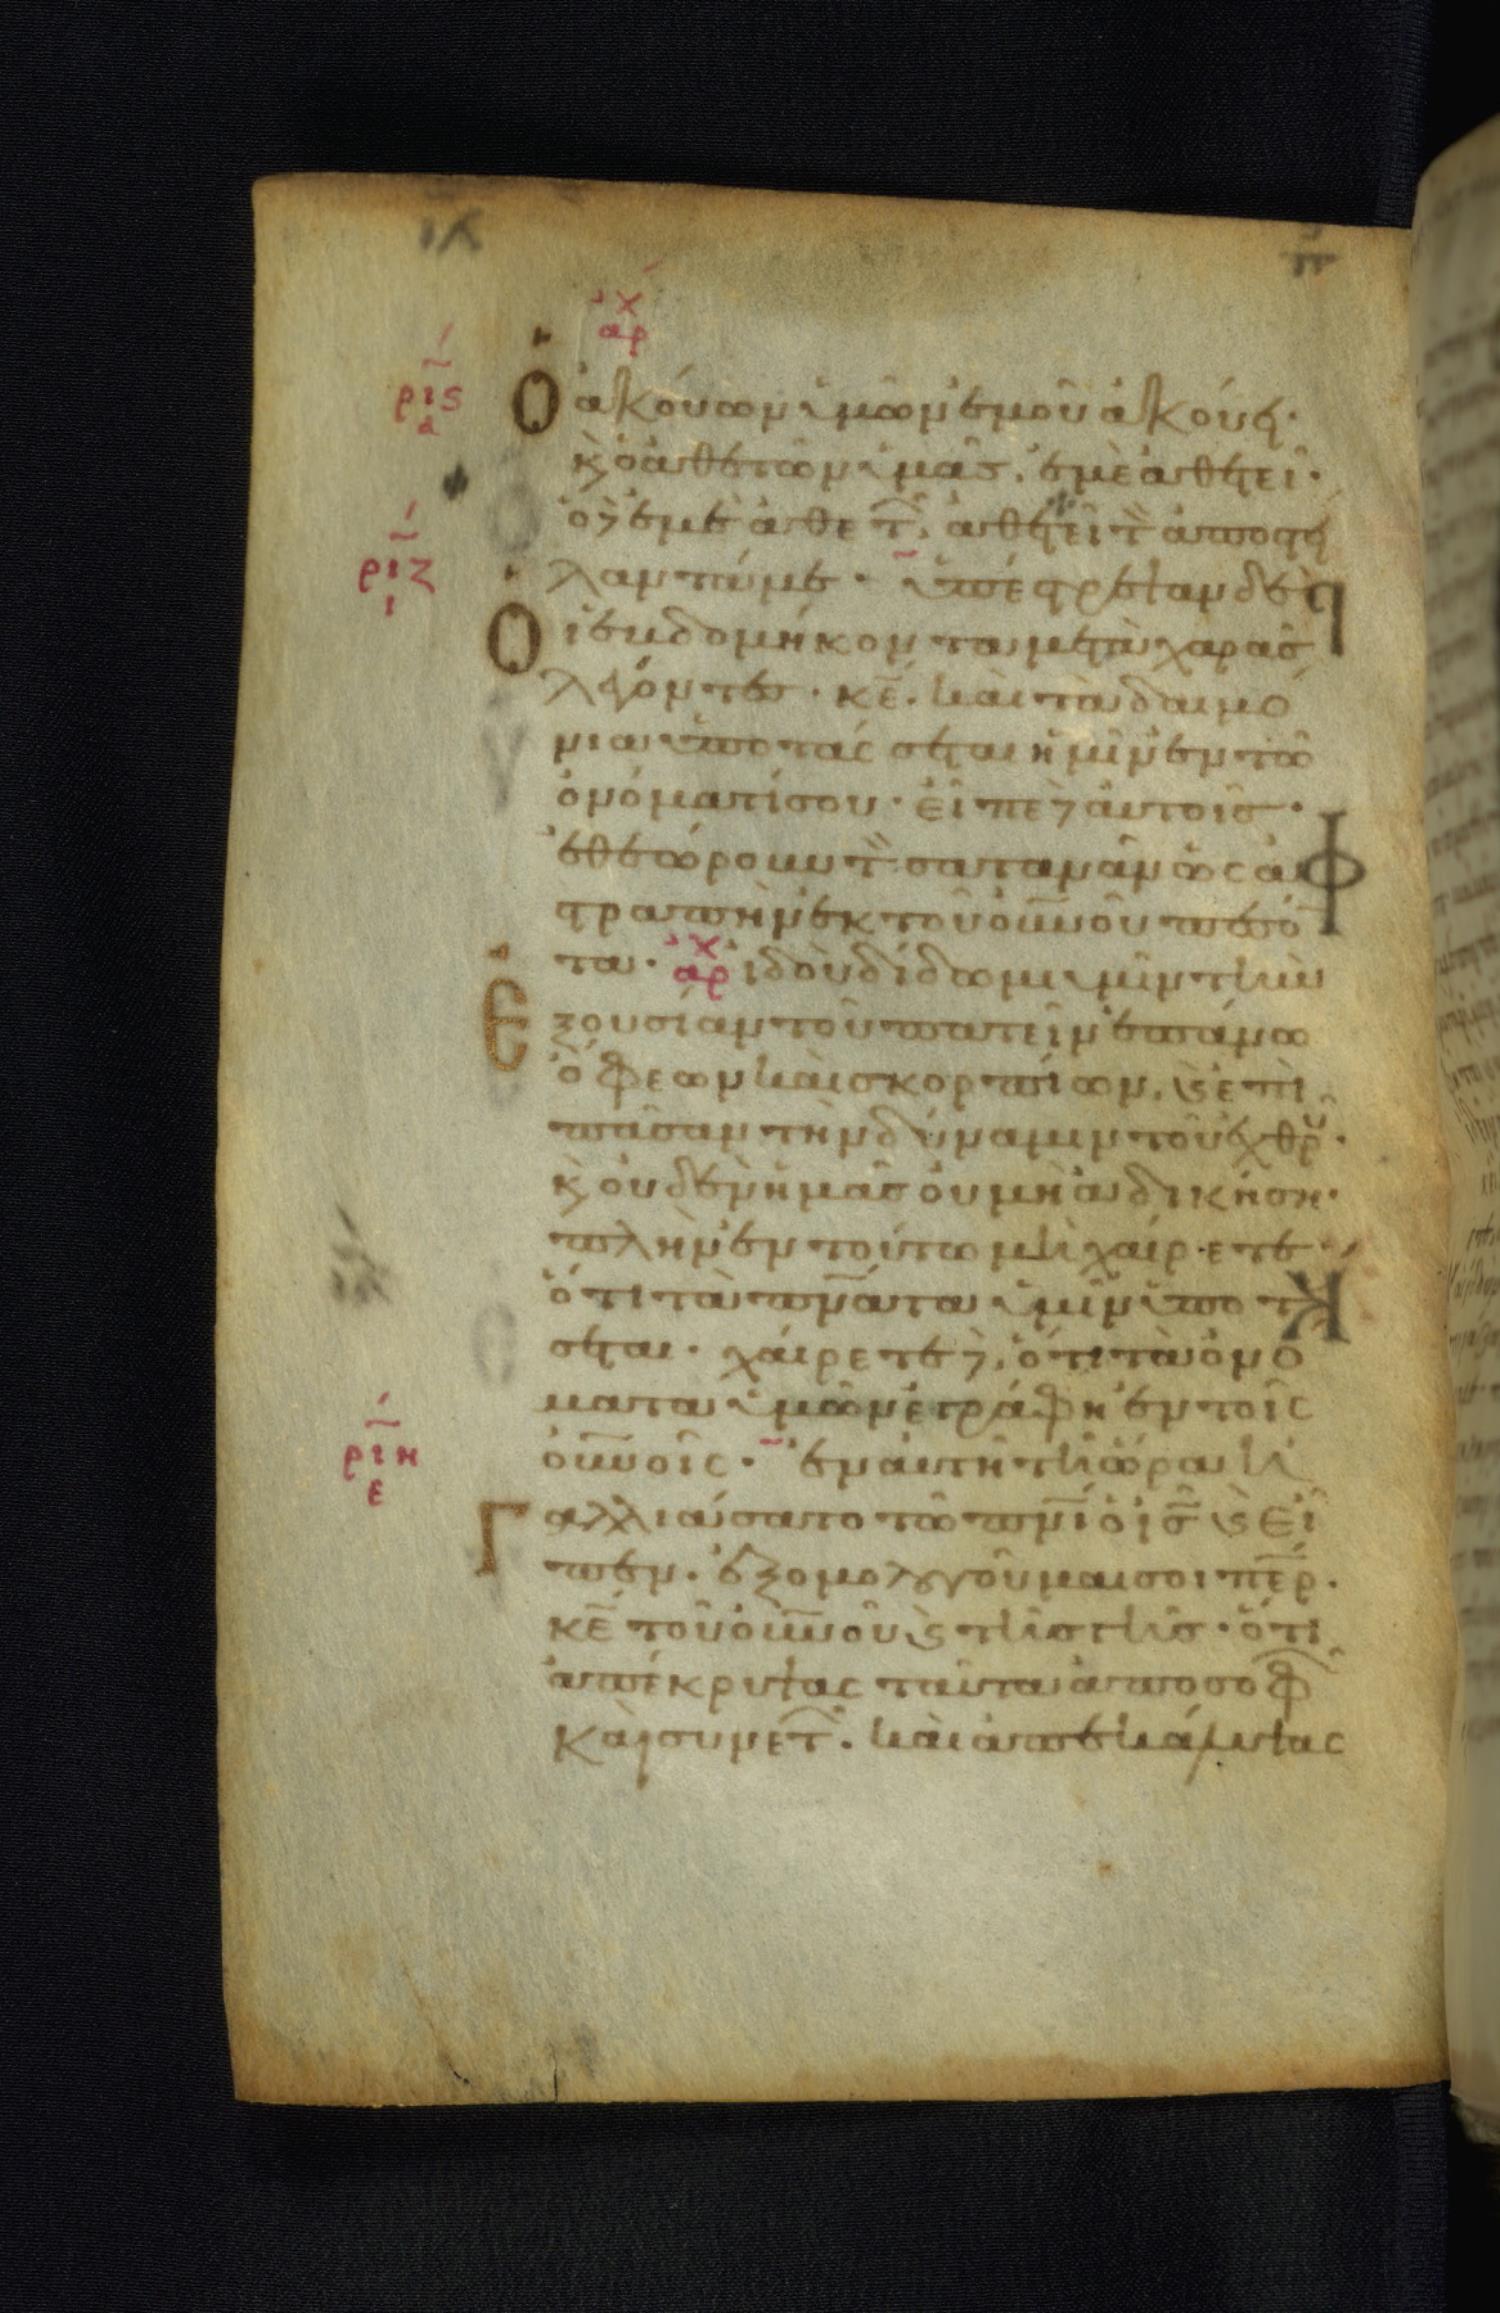 ἀρχ
ριϛ
α
Ὁ ἀκούων ὑμῶν ἐμοῦ ἀκούει·
κ ὁ ἀθετῶν ὑμᾶς, ἐμὲ ἀθετεῖ·
ὁ δὲ ἐμὲ ἀθετ, ἀθετεῖ τὸν ἀποστεί
ριζ
ι
λαντά με· Ὑπέστρεψαν δὲ
Οἱ ἑβδομήκοντα μετὰ χαρᾶς
λέγοντες· κε̄. καὶ τὰ δαιμό
νια ὑποτάσσεται ἡμῖν ἐν τῶ
ὀνόματί σου· εἶπε δὲ αὐτοῖς·
ἐθεώρουν τὸν σατανᾶν ὡς ἀ
στραπὴν ἐκ τοῦ οὐνοῦ πεσό
τα· ἀρχ ἰδοὺ δίδωμι ὑμῖν τὴν ἐ
Ἐξουσίαν τοῦ πατεῖν ἐπάνω
ὄφεων καὶ σκορπίων, καὶ ἐπὶ
πᾶσαν τὴν δύναμιν τοῦ ἐχθρου·
κ οὐδὲν ἡμᾶς οὐ μὴ ἀδικήση·
πλὴν ἐν τούτω μὴ χαίρετε·
ὅτι τὰ πνᾱτα ὑμῖν ὑποτάσ
σεται· χαίρετε δὲ, ὅτι τὰ ὀνό
ματα ὑμῶν ἐγράφη ἐν τοῖς
ριη
ε
οὐνοῖς· ἐν αὐτῆ τῆ ὥρα ἠ
Γαλλιάσατο τῶ πνῑ ὁ ις̄ καὶ εἶ
πεν· ἐξομολογοῦμαί σοι περ̄·
κε̄ τοῦ οὐνοῦ καὶ τῆς γῆς· ὅτι
ἀπέκρυψας ταῦτα ἀπὸ σοφ
καὶ συνετ. καὶ ἀπεκάλυψας